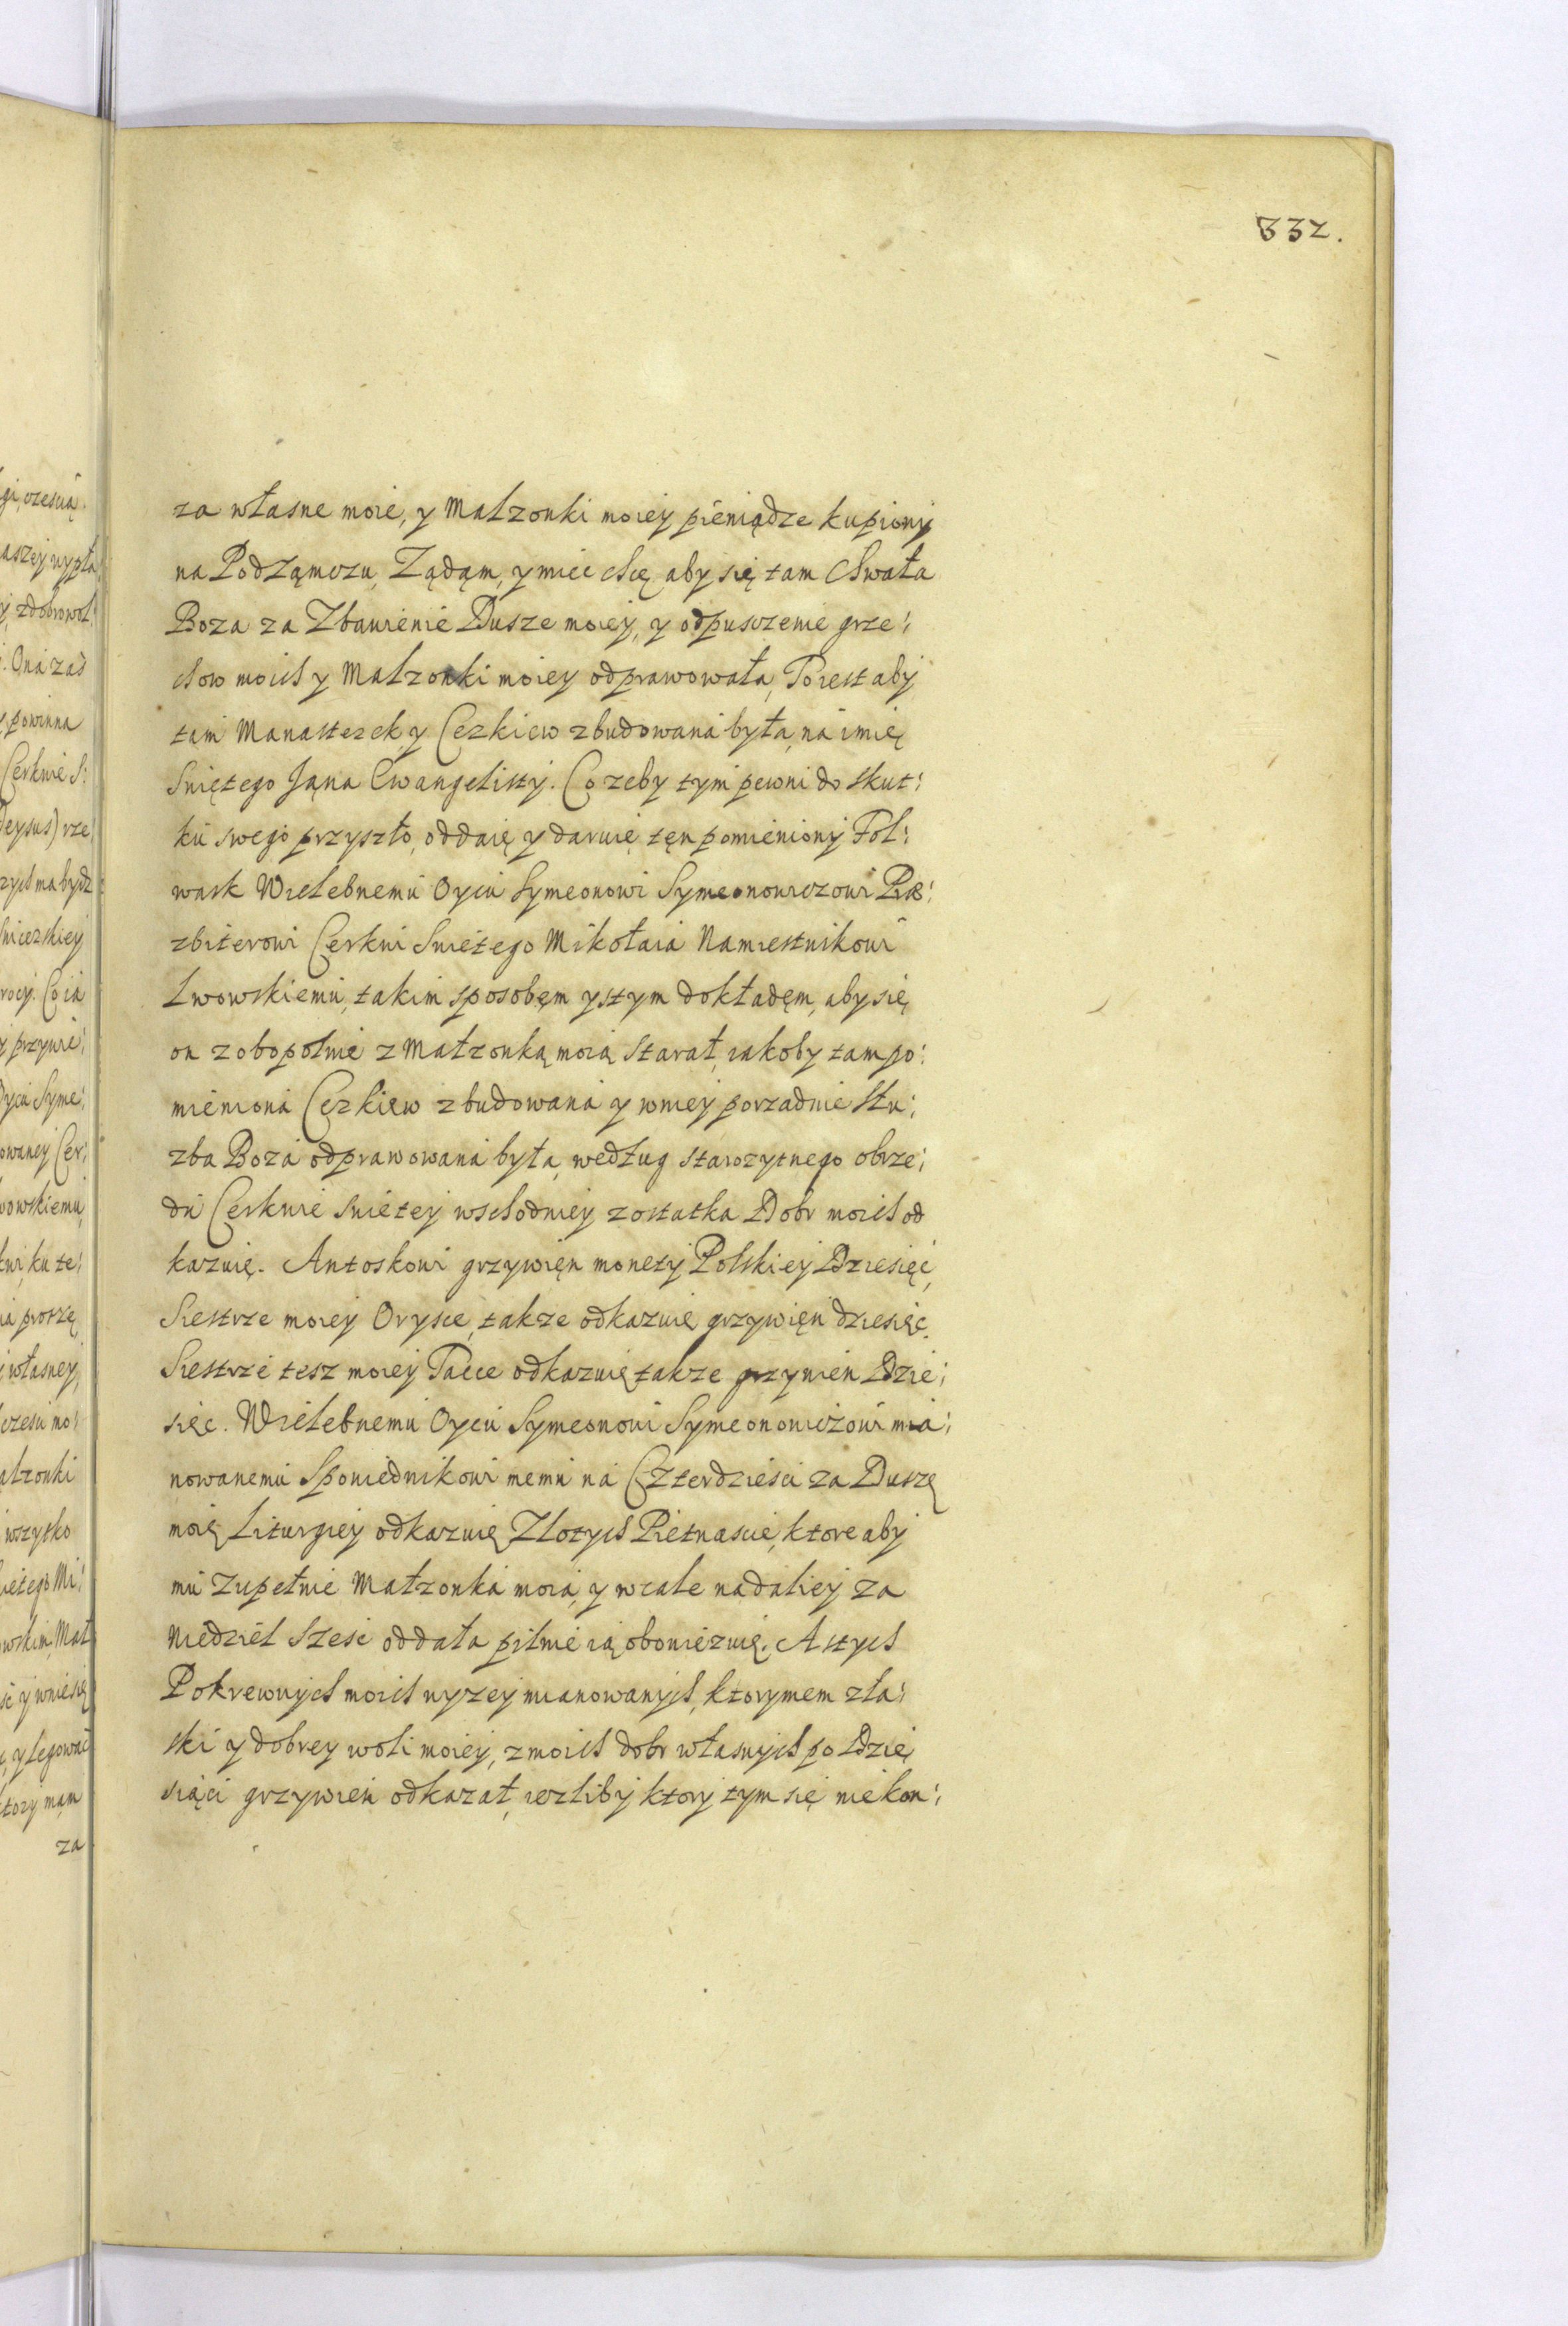 332.
za własne moie, y Małzonki moiey pieniądze kupiony
na Podząmczu, Ządąm, y miec chcę aby się tam Chwała
Boza za Zbawienie Dusze moiey, y odpusczenie grze:
chow moich y Małzonki moiey odprawowała, To iest aby
tam Manasterek y Cerkiew zbudowana była, na imię
Swiętego Jąna Ewangelisty. Co zeby tym pewni do skut:
ku swego przyszło, oddaię y daruię tęn pomieniony Fol:
wark Wielebnemu Oycu Symeonowi Symeonowiczowi Præ:
zbiterowi Cerkwi Swietego Mikołaia Namiestnikowi
Lwowskiemu, takim sposobęm y stym dokładęm, aby się
on z obopolnie z Małzonką moią starał, iakoby tam po:
mieniona Cęrkięw zbudowana y wniey porzadnie słu:
zba Boza odprawowana była, według starozytnego obrze:
du Cerkwie swietey wschodniey z ostatka Dobr moich od
kazuię. Antoskowi grzywięn monety Polskiey Dziesięć,
Siestrze moiey Orysce, takze odkazuię grzywięn dziesięc.
Siestrze tesz moiey Pacce odkazuię takze grzywien Dzie:
sięc. Wielebnemu Oycu Symeonowi Symeonowiczowi mia:
nowanemu Spowiednikowi memu na Czterdziesci za Duszę
moię Liturgiey odkazuię Złotych Pietnascie, ktore aby
mu Zupełnie Małzonka moia, y wcale nadaliey za
Niedziel szesc oddała pilnie ią obowiezuię. A stych
Pokrewnych moich wyzey mianowanych, ktorymem z ła:
ski y dobrey woli moiey, z moich dobr własnych po Dzie
siąci grzywien odkazał, iezliby ktory tym się niekon: